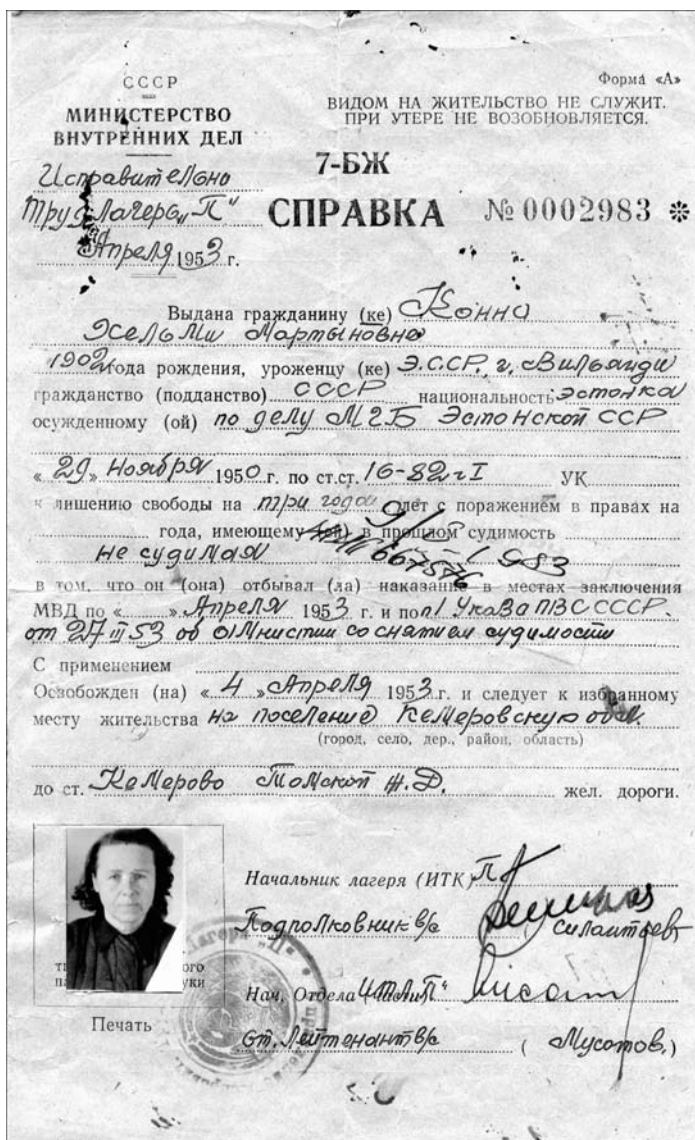 СССР
Форма «А»
МИНИСТЕРСТВО
ВНУТРЕННИХ ДЕЛ
ВИДОМ НА ЖИТЕЛЬСТВО НЕ СЛУЖИТ.
ПРИ УТЕРЕ НЕ ВОЗОБНОВЛЯЕТСЯ.
Исправительно
Труд. Лагерь „П"
Апреля 1953 г.
7-БЖ
СПРАВКА № 0002983 *
Выдана гражданину (ке) Конно
Хельми Мартыновне
1902 года рождения, уроженцу (ке) Э.С.С.Р. г. Вильянди
гражданство (подданство) СССР национальность эстонка
осужденному (ой) по делу МГБ Эстонской ССР
« 29 » Ноября 1950 г. по ст.ст. 16-82 ч I УК
к лишению свободы на три года лет с поражением в правах на
года, имеющему (ей) в прошлом судимость
не судимая
в том, что он (она) отбывал (ла) наказание в местах заключения
МВД по « » Апреля 1953 г. и по Указа ПВС СССР.
от 27 III 53 об Амнистии со снятием судимости
С применением
Освобожден (на) « 4 » Апреля 1953 г. и следует к избранному
месту жительства на поселение Кемеровскую обл.
(город, село, дер., район, область)
до ст. Кемерово Томской Ж.Д. жел. дороги.
Начальник лагеря (ИТК) „П"
Подполковник в/с ( Силантьев
Нач. Отдела ИТЛ „П"
Ст. Лейтенант в/с ( Мусатов.)
Печать